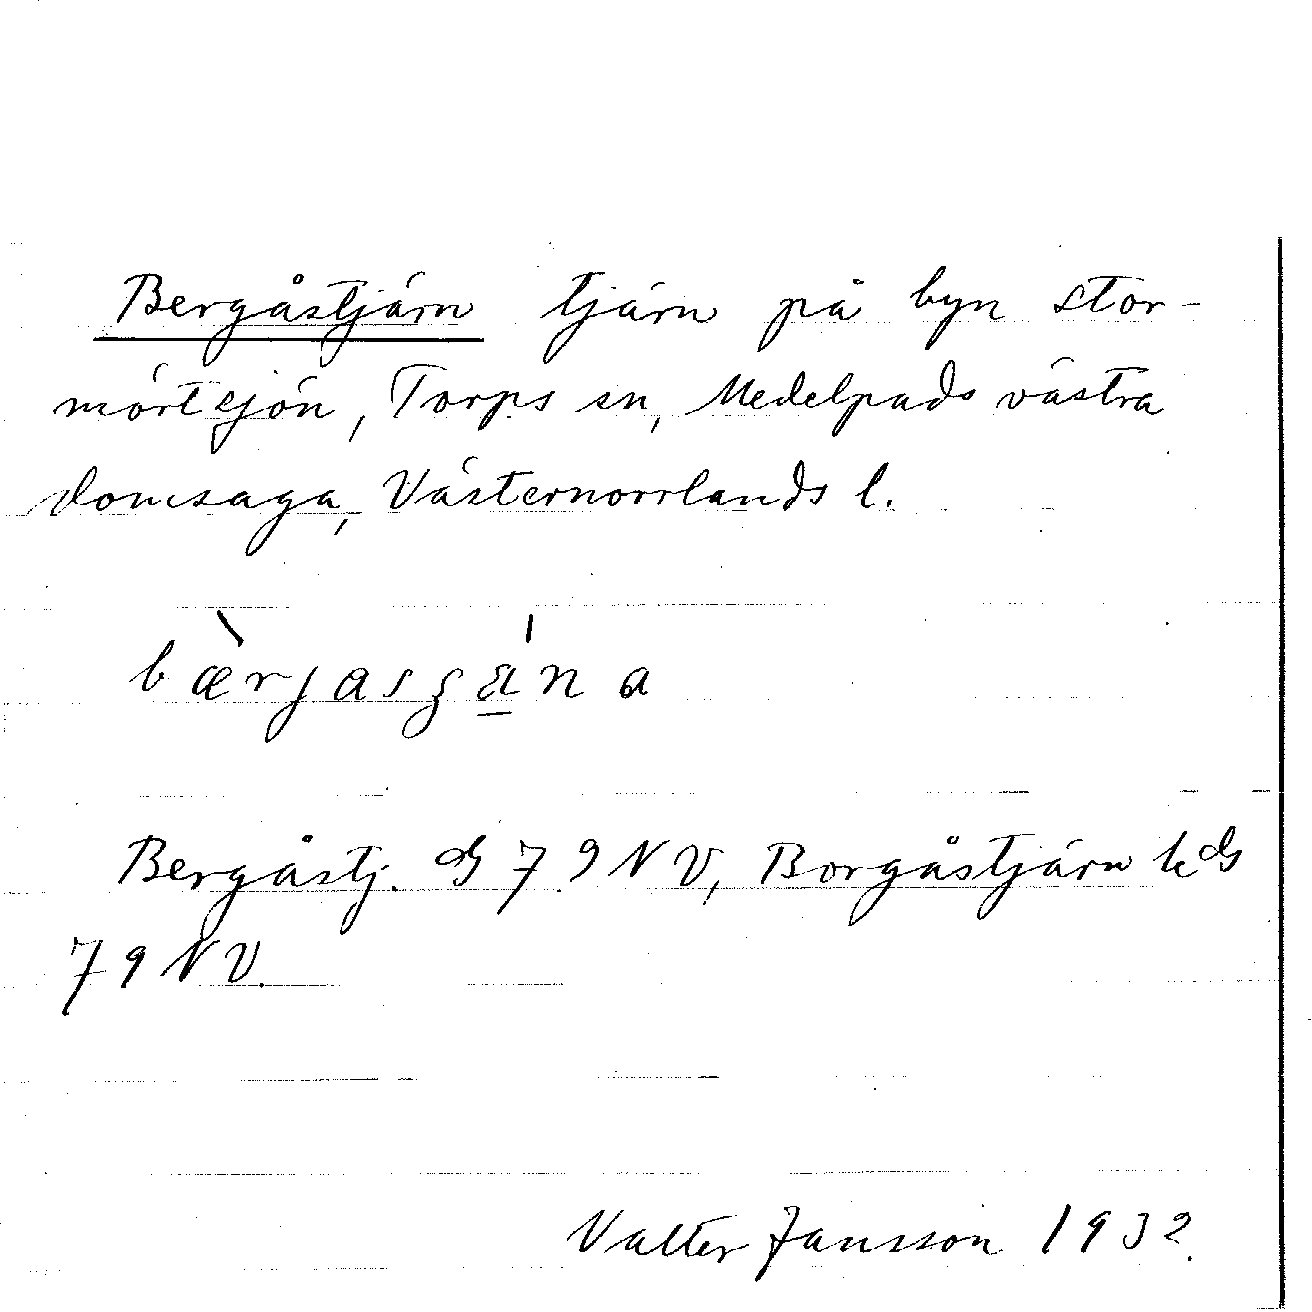 Bergåstjärn tjärn på byn Stor-
mörtsjön, Torps sn, Medelpads västra
domsaga, Västernorrlands l.
Bergåstj. GS 79 NV, Borgåstjärn
79 NV.
Valter Jansson 1932.